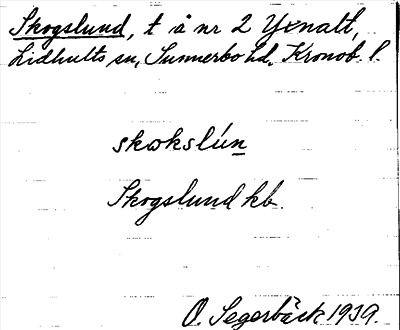 Skogslund, t å nr 2 Yxnalt,
Lidhults sn, Sunnerbo hd, Kronob. l.
skokslún
Skogslund kb.
O. Segerbäck 1939.